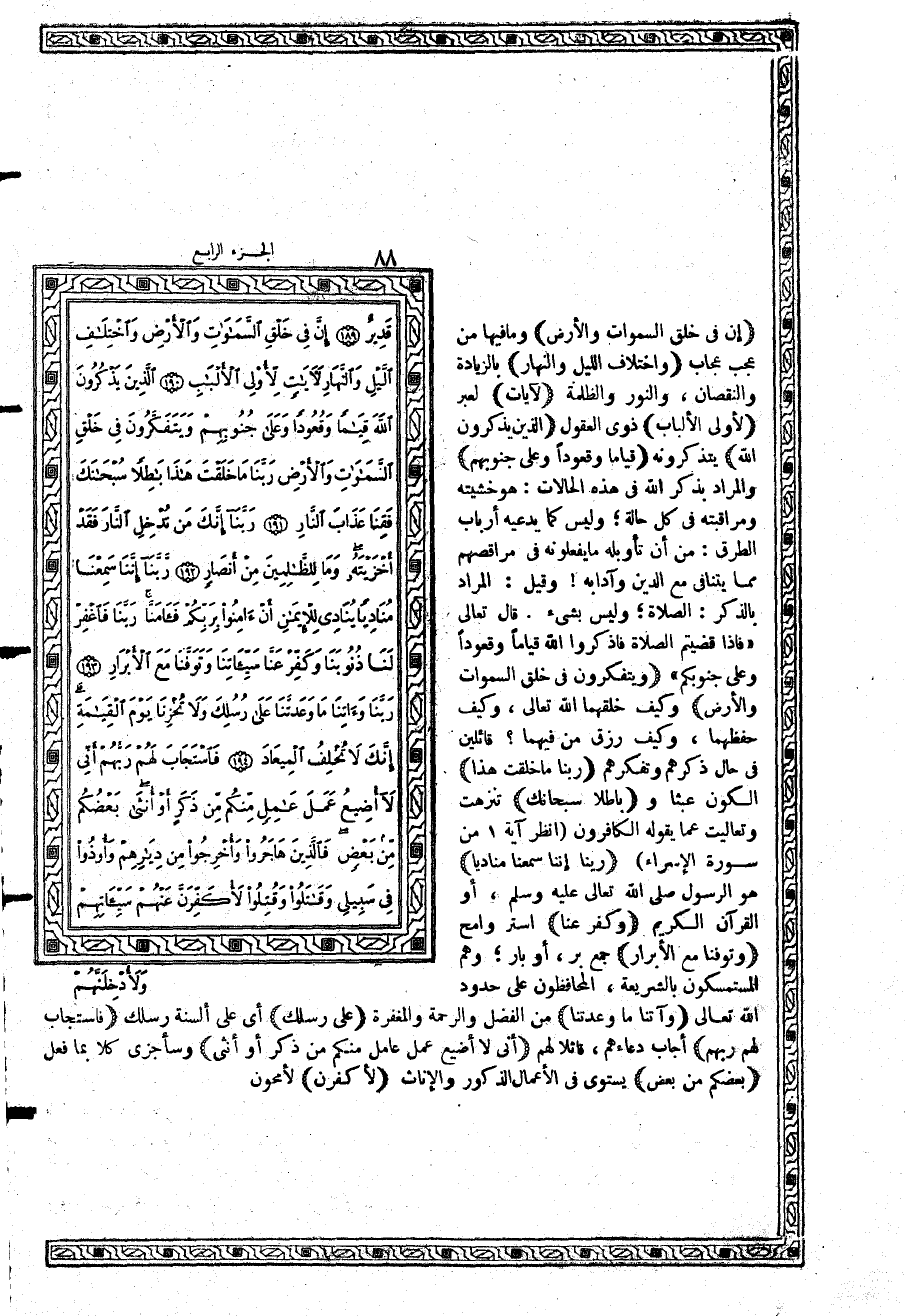 ٨٨
الجزء الرابع
قَدِيرٌ ﴿١٨٩﴾ إِنَّ فِي خَلْقِ ٱلسَّمَٰوَٰتِ وَٱلْأَرْضِ وَٱخْتِلَٰفِ
ٱلَّيْلِ وَٱلنَّهَارِ لَءَايَٰتٍ لِّأُو۟لِي ٱلْأَلْبَٰبِ ﴿١٩٠﴾ ٱلَّذِينَ يَذْكُرُونَ
ٱللَّهَ قِيَٰمًا وَقُعُودًا وَعَلَىٰ جُنُوبِهِمْ وَيَتَفَكَّرُونَ فِي خَلْقِ
ٱلسَّمَٰوَٰتِ وَٱلْأَرْضِ رَبَّنَا مَا خَلَقْتَ هَٰذَا بَٰطِلًا سُبْحَٰنَكَ
فَقِنَا عَذَابَ ٱلنَّارِ ﴿١٩١﴾ رَبَّنَآ إِنَّكَ مَن تُدْخِلِ ٱلنَّارَ فَقَدْ
أَخْزَيْتَهُۥ وَمَا لِلظَّٰلِمِينَ مِنْ أَنصَارٍ ﴿١٩٢﴾ رَّبَّنَآ إِنَّنَا سَمِعْنَا
مُنَادِيًا يُنَادِي لِلْإِيمَٰنِ أَنْ ءَامِنُوا۟ بِرَبِّكُمْ فَـَٔامَنَّا ۚ رَبَّنَا فَٱغْفِرْ
لَنَا ذُنُوبَنَا وَكَفِّرْ عَنَّا سَيِّـَٔاتِنَا وَتَوَفَّنَا مَعَ ٱلْأَبْرَارِ ﴿١٩٣﴾
رَبَّنَا وَءَاتِنَا مَا وَعَدتَّنَا عَلَىٰ رُسُلِكَ وَلَا تُخْزِنَا يَوْمَ ٱلْقِيَٰمَةِ ۗ
إِنَّكَ لَا تُخْلِفُ ٱلْمِيعَادَ ﴿١٩٤﴾ فَٱسْتَجَابَ لَهُمْ رَبُّهُمْ أَنِّي
لَآ أُضِيعُ عَمَلَ عَٰمِلٍ مِّنكُم مِّن ذَكَرٍ أَوْ أُنثَىٰ ۖ بَعْضُكُم
مِّنۢ بَعْضٍ ۖ فَٱلَّذِينَ هَاجَرُوا۟ وَأُخْرِجُوا۟ مِن دِيَٰرِهِمْ وَأُوذُوا۟
فِي سَبِيلِي وَقَٰتَلُوا۟ وَقُتِلُوا۟ لَأُكَفِّرَنَّ عَنْهُمْ سَيِّـَٔاتِهِمْ
وَلَأُدْخِلَنَّهُمْ
(إن فى خلق السموات والأرض) ومافيها من
عجب عجاب (واختلاف الليل والنهار) بالزيادة
والنقصان ، والنور والظلمة (لآيات) لعبر
(لأولى الألباب) ذوى العقول (الذين يذكرون
الله) يتذكرونه (قياما وقعوداً وعلى جنوبهم)
والمراد بذكر الله فى هذه الحالات : هو خشيته
ومراقبته فى كل حالة ؛ وليس كما يدعيه أرباب
الطرق : من أن تأويله مايفعلونه فى مراقصهم
مما يتنافى مع الدين وآدابه ! وقيل : المراد
بالذكر : الصلاة ؛ وليس بشىء . قال تعالى
«فاذا قضيتم الصلاة فاذكروا الله قياماً وقعوداً
وعلى جنوبكم» (ويتفكرون فى خلق السموات
والأرض) وكيف خلقهما الله تعالى ، وكيف
حفظهما ، وكيف رزق من فيهما ؟ قائلين
فى حال ذكرهم وتفكرهم (ربنا ماخلقت هذا)
الكون عبثا و (باطلا سبحانك) تنزهت
وتعاليت عما يقوله الكافرون (انظر آية ١ من
سورة الإسراء) (ربنا إننا سمعنا مناديا)
هو الرسول صلى الله تعالى عليه وسلم ، أو
القرآن الكريم (وكفر عنا) استر وامح
(وتوفنا مع الأبرار) جمع بر ، أو بار ؛ وهم
المستمسكون بالشريعة ، المحافظون على حدود
الله تعالى (وآتنا ما وعدتنا) من الفضل والرحمة والمغفرة (على رسلك) أى على ألسنة رسلك (فاستجاب
لهم ربهم) أجاب دعاءهم ، قائلا لهم (أنى لا أضيع عمل عامل منكم من ذكر أو أنثى) وسأجزى كلا بما فعل
(بعضكم من بعض) يستوى فى الأعمال الذكور والإناث (لأكفرن) لأمحون